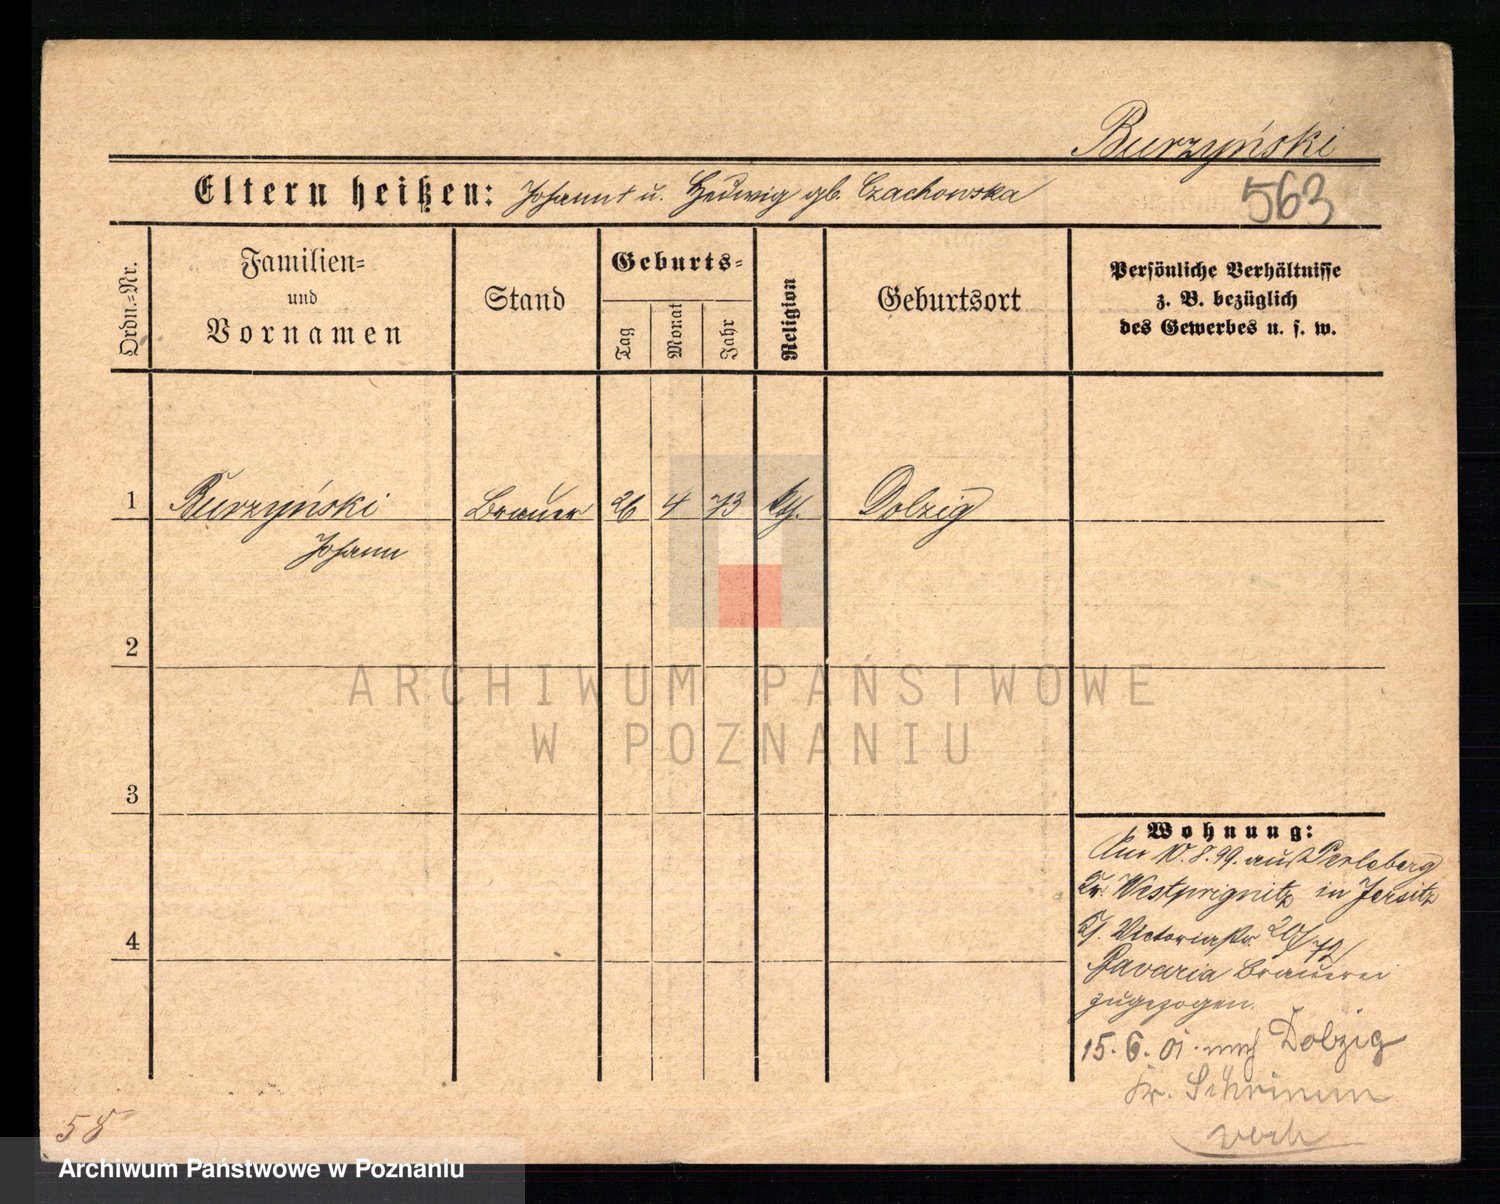 Burzyński
Eltern heißen: Johann † u. Hedwig gb. Czachowska
563
Ordn.-Nr.
Familien-
und
Vornamen
Stand
Geburts-
Tag
Monat
Jahr
Religion
Geburtsort
Persönliche Verhältnisse
z. B. bezüglich
des Gewerbes u. s. w.
1 Burzyński Brauer 26 4 73 kth. Dolzig
Johann
2
ARCHIWUM PAŃSTWOWE
W POZNANIU
3
4
Wohnung:
Am 10.8.99. aus Perleberg
Kr. Westprignitz in Jersitz
Victoriastr. 20/
Bavaria Brauerei
zugezogen.
15.6.01. nach Dolzig
Kr. Schrimm
58
Archiwum Państwowe w Poznaniu